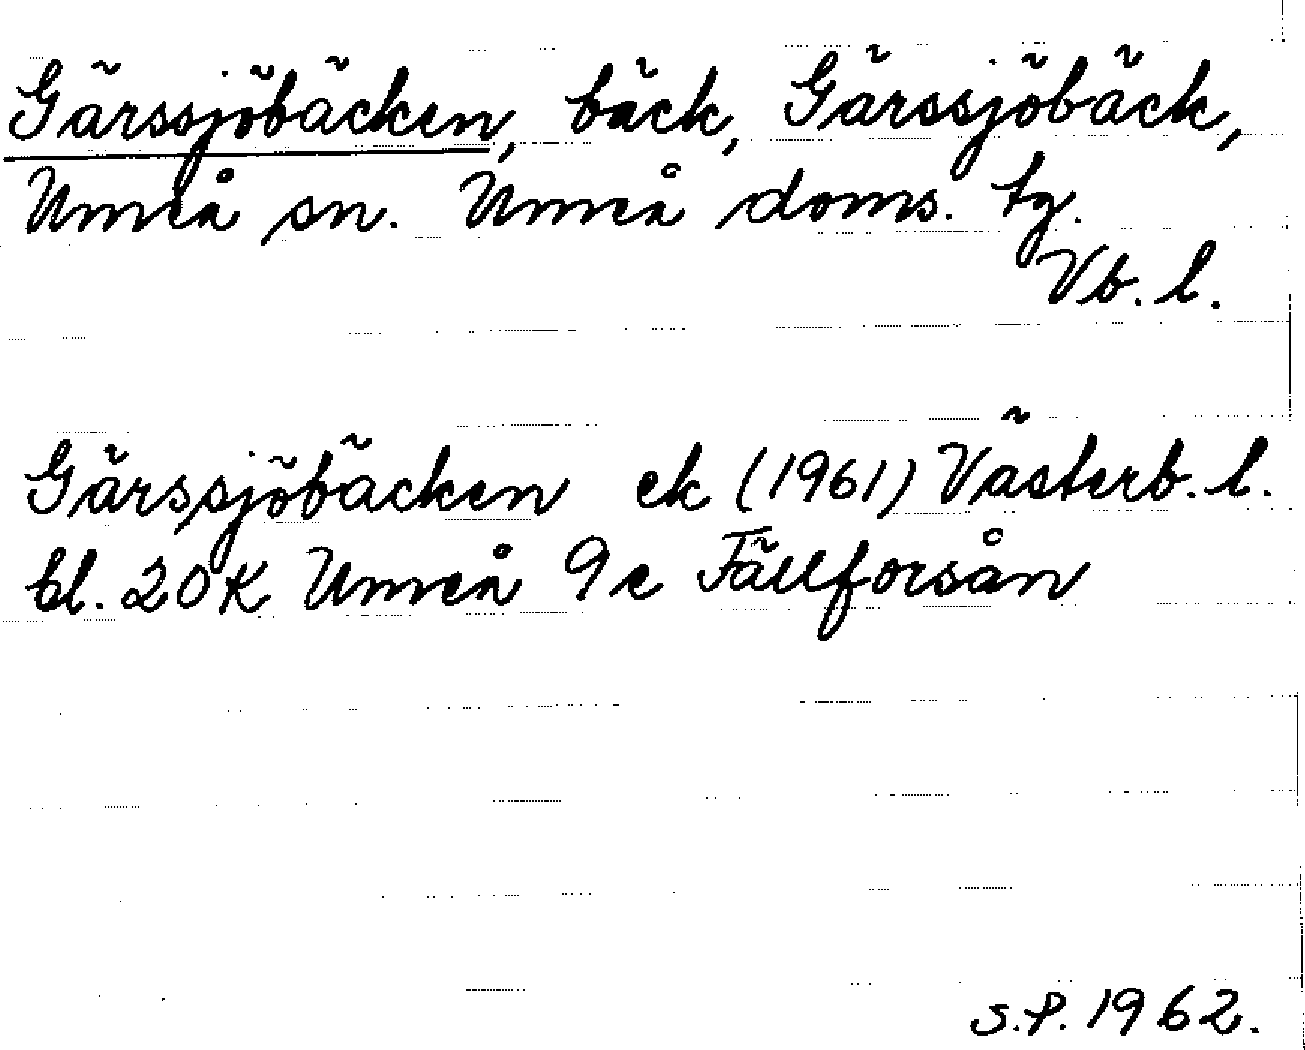 Gärssjöbäcken, bäck, Gärssjöbäck,
Umeå sn. Umeå doms. tg.
Vb. l.
Gärssjöbäcken ek (1961) Västerb. l.
bl. 20K Umeå 9c Fällforsån
S.P. 1962.